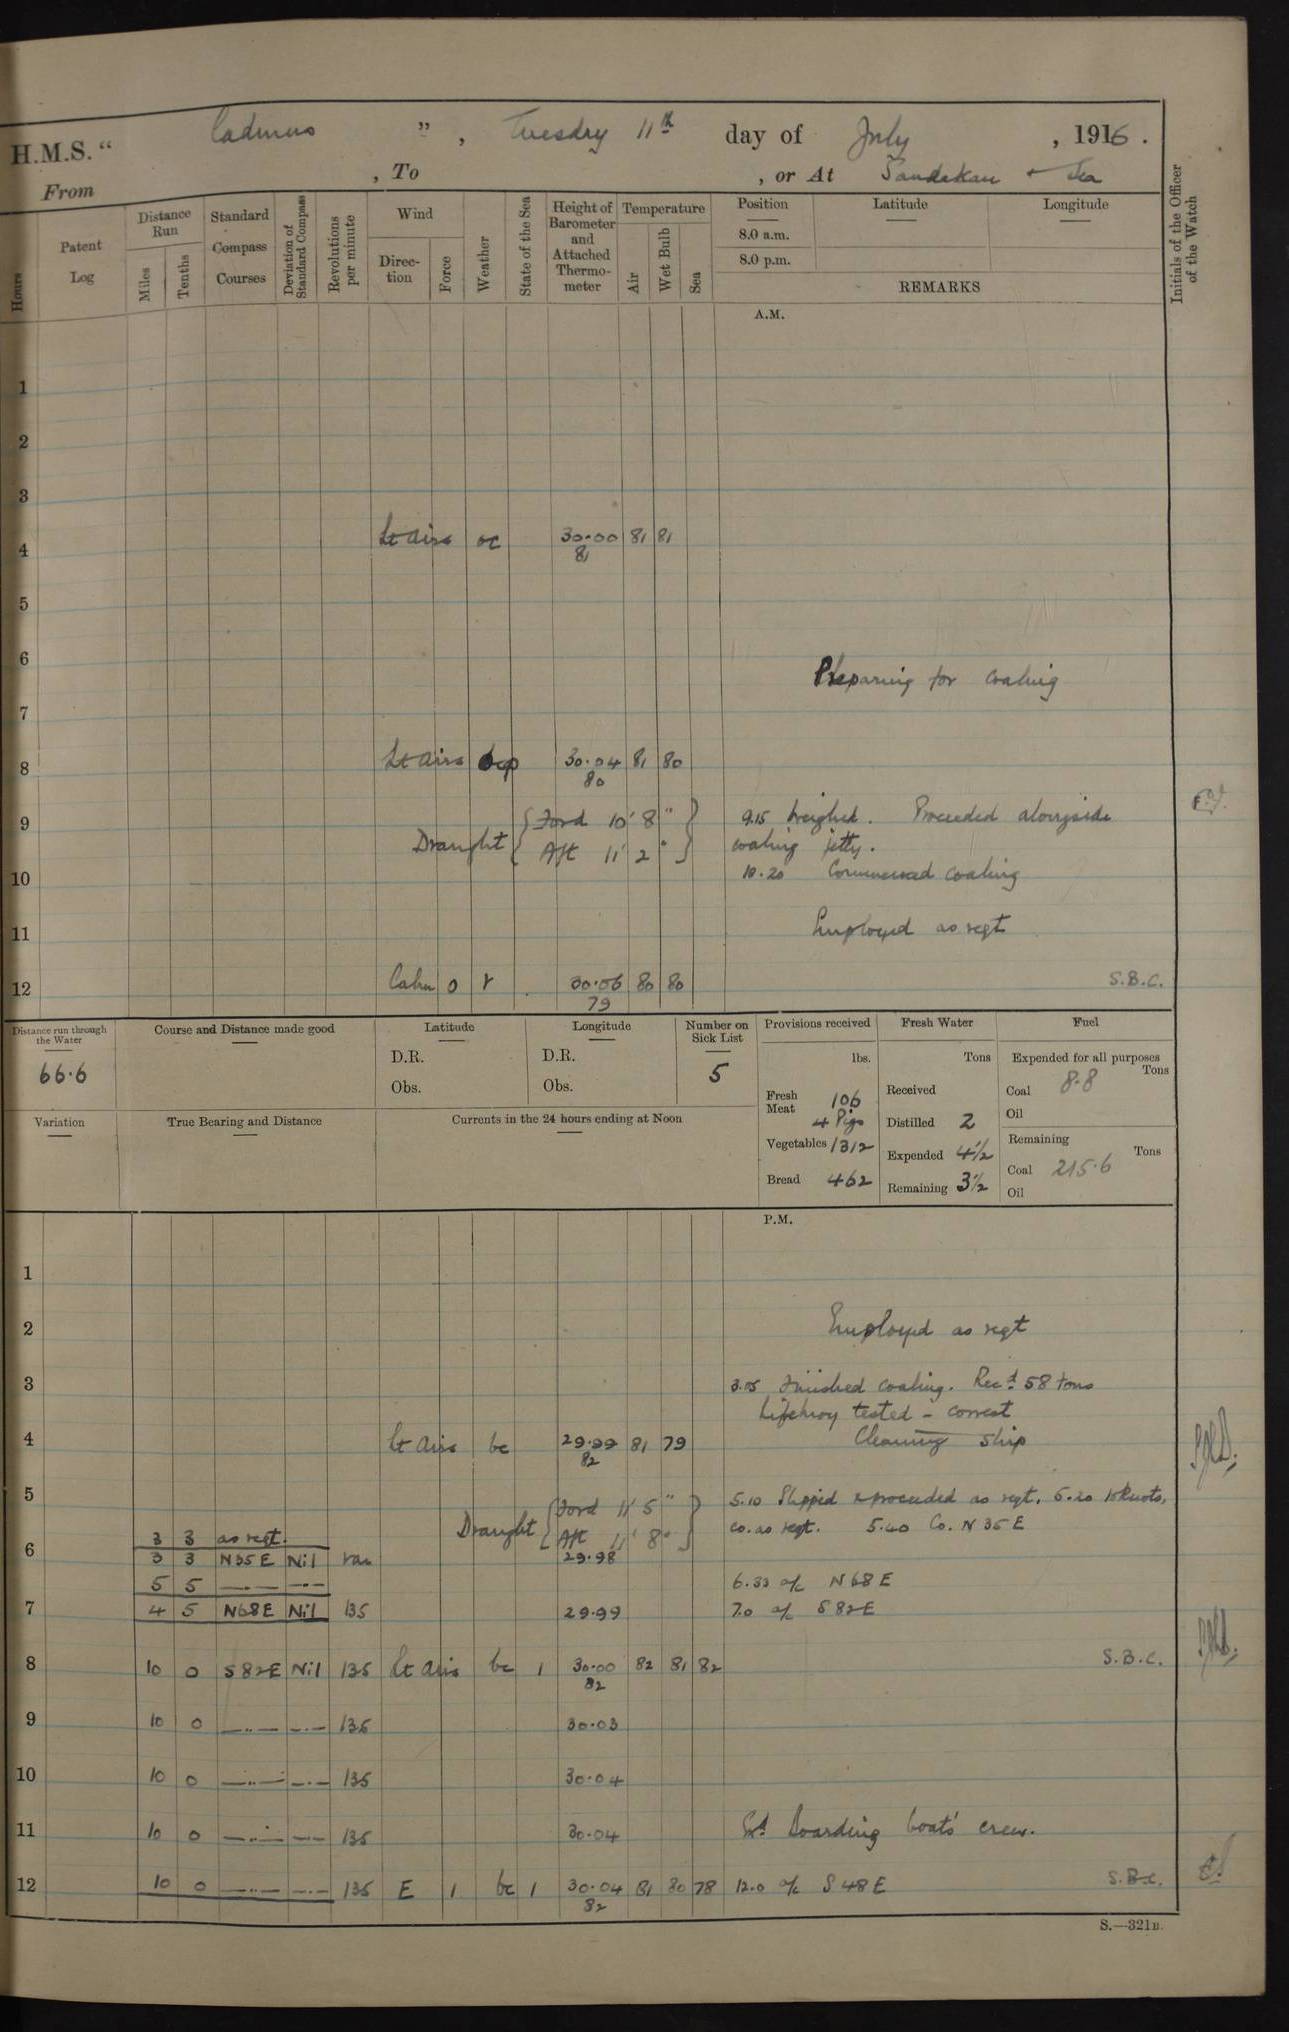 H.M.S. " Cadmus ", Tuesday 11th day of July , 1916.
From , To , or At Sandakan + Sea
Hours
Patent Log
Distance Run
Miles
Tenths
Standard Compass Courses
Deviation of Standard Compass
Revolutions per minute
Wind
Direction
Force
Weather
State of the Sea
Height of Barometer and Attached Thermometer
Temperature
Air
Wet Bulb
Sea
Position
8.0 a.m.
8.0 p.m.
Latitude
Longitude
REMARKS
Initials of the Officer of the Watch
A.M.
1
2
3
4 Lt airs oc 30.00 81 81
81
5
6 Preparing for coaling
7
8 Lt airs 30.04 81 80
80
9 Draught { Ford 10' 8" } 9.15 Weighed. Proceeded alongside
Aft 11' 2" coaling jetty.
10 10.20 Commenced coaling
11 Employed as reqt
12 Calm 0 r 30.06 80 80 S.B.C.
79
Distance run through the Water
66.6
Course and Distance made good
Latitude
D.R.
Obs.
Longitude
D.R.
Obs.
Number on Sick List
5
Provisions received
lbs.
Fresh Meat 106
4 Pigs
Vegetables 1312
Bread 462
Fresh Water
Tons
Received
Distilled 2
Expended 4½
Remaining 3½
Fuel
Expended for all purposes
Tons
Coal 8.8
Oil
Remaining
Tons
Coal 215.6
Oil
Variation
True Bearing and Distance
Currents in the 24 hours ending at Noon
P.M.
1
2 Employed as reqt
3 3.15 Finished coaling. Recd 58 tons
Lifebuoy tested - correct
4 Lt airs bc 29.99 81 79 Cleaning ship
82
5 Draught { Ford 11' 5" } 5.10 Slipped & proceeded as reqt. 5.20 10 knots,
Aft 11' 8" co. as reqt. 5.40 Co. N 35 E
3 3 as reqt.
6 3 3 N35E Nil var 29.98
5 5 —..— —..— 6.33 a/c N68E
7 4 5 N68E Nil 135 29.99 7.0 a/c S82E
8 10 0 S82E Nil 135 Lt airs bc 1 30.00 82 81 82 S.B.C.
82
9 10 0 —..— —..— 135 30.03
10 10 0 —..— —..— 135 30.04
11 10 0 —..— —..— 135 30.04 Exd Boarding boat's crew.
12 10 0 —..— —..— 135 E 1 bc 1 30.04 81 80 78 12.0 a/c S48E S.B.C.
82
S.—321B.